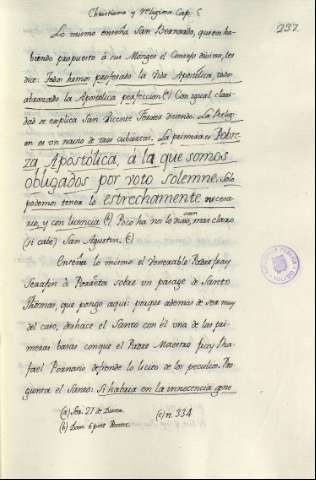 Christiana y Religiosa. Cap. 5
237.
Lo mismo enseña San Bernardo, quien ha-
biendo propuesto á sus Monges el Consejo divino, les
dice: Todos hemos profesado la Vida Apostólica, todos
abrazado la Apostólica perfeccion (a) Con igual clari-
dad se explica San Vicente Ferrer diciendo. La Religi-
on es un navio de tres cubiertas. La primera es Pobre-
za Apostólica, á la que somos
obligados por voto solemne. Solo
podemos tener lo estrechamente necesa-
rio, y con licencia (b) Poco ha no lo dixo, mas claro
(si cabe) San Agustin. (c)
Enseña lo mismo el Venerable Padre fray
Serafin de sobre un pasage de Santo
Thomas, que pongo aqui: porque ademas de ser muy
del caso, deshace el Santo con él una de las pri-
meras bases con que el Padre Maestro fray Rha-
fael defiende lo licito de los peculios. Pre-
gunta el Santo: Si habria en la innocencia gene
(a) Ser. 27 de
(b) Dom. 6 post
(c) n. 334